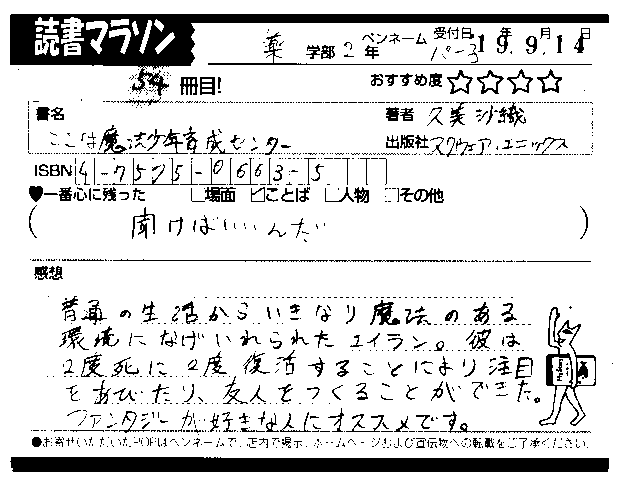 読書マラソン
薬 学部 2 年 ペンネーム パーヨ 受付日 19年 9月 14日
54 冊目! おすすめ度 ☆☆☆☆
書名 著者 久美沙織
ここは魔法少年育成センター 出版社 スクウェア・エニックス
ISBN 4-7575-0663-5
♥一番心に残った □場面 ☑ことば □人物 □その他
( 聞けばいいんだ )
感想
普通の生活からいきなり魔法のある
環境になげいれられたエイラン。彼は
2度死に2度復活することにより注目
をあびたり、友人をつくることができた。
ファンタジーが好きな人にオススメです。
●お寄せいただいたPOPはペンネームで、店内で掲示、ホームページおよび宣伝物への転載をご了承ください。